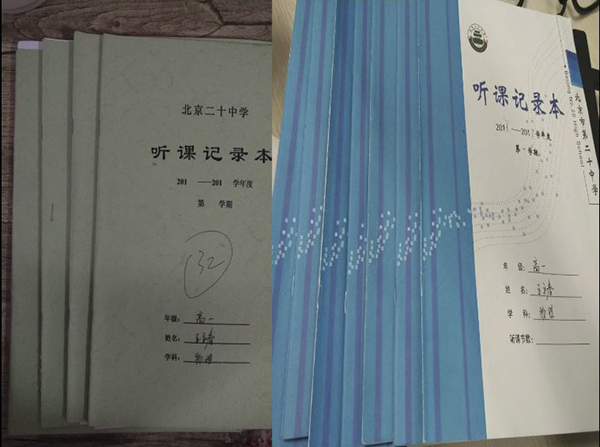 北京二十中学
听课记录本
201 ——201 学年度
第 学期
32
年级：高一
姓名：
学科：物理
听课记录本
201 ——201 学年度
第一学期
年 级：高一
姓 名：
学 科：物理
听课节数：
北京市第二十中学
Beijing No.20 High School